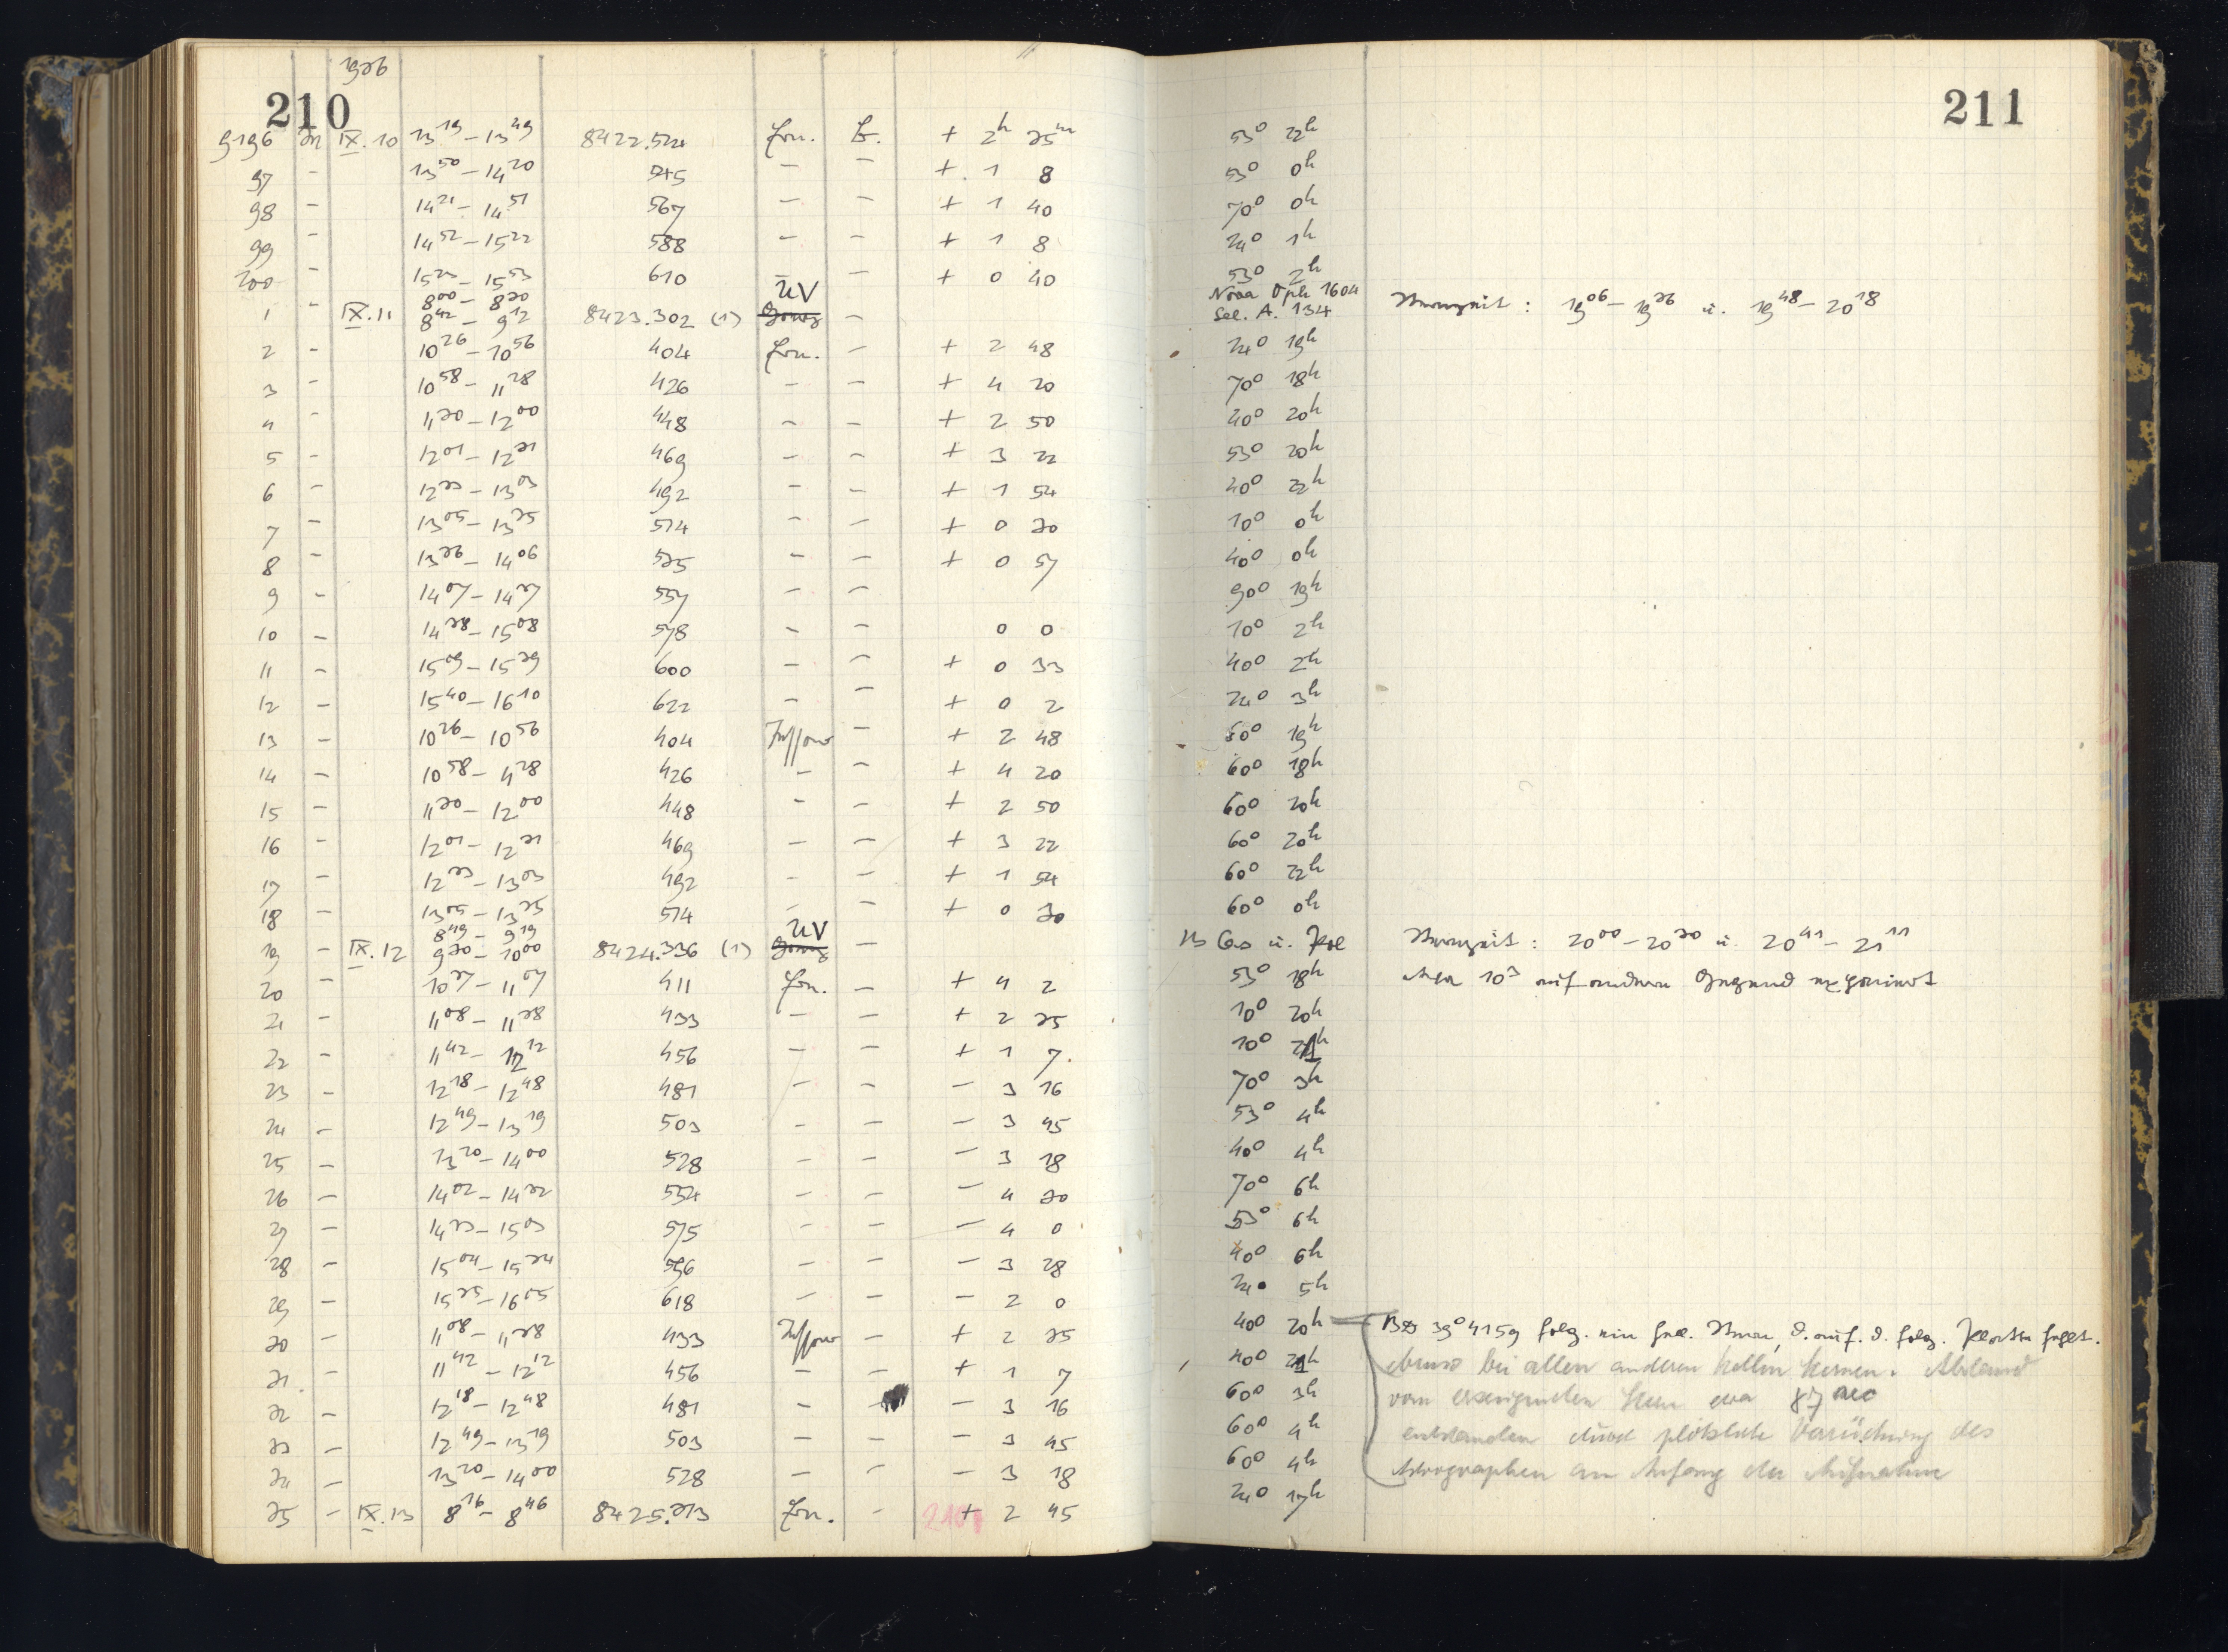 1936
210
211
9196 m IX.10 13 19 – 13 49 8422.524 Ern. + 2h 35m 53° 22h
97 – 13 50 – 14 20 545 – – + 1 8 53° 0h
98 – 14 21 – 14 51 567 – – + 1 40 70° 0h
99 – 14 52 – 15 22 588 – – + 1 8 24° 1h
200 – 15 23 – 15 53 610 – – + 0 40 53° 2h
8 00 – 8 30 UV Nova Oph 1604
1 – IX.11 8 42 – 9 12 8423.302 (1) – Sel. A. 134 Sternzeit : 19 06 – 19 36 u. 19 48 – 20 18
2 – 10 26 – 10 56 404 Ern. – + 2 48 24° 19h
3 – 10 58 – 11 28 426 – – + 4 20 70° 18h
4 – 11 30 – 12 00 448 – – + 2 50 40° 20h
5 – 12 01 – 12 31 469 – – + 3 22 53° 20h
6 – 12 33 – 13 03 492 – – + 1 54 40° 22h
7 – 13 05 – 13 35 514 – – + 0 30 10° 0h
8 – 13 36 – 14 06 535 – – + 0 57 40° 0h
9 – 14 07 – 14 37 557 – – 90° 19h
10 – 14 38 – 15 08 578 – – 0 0 10° 2h
11 – 15 09 – 15 39 600 – – + 0 33 40° 2h
12 – 15 40 – 16 10 622 – – + 0 2 24° 3h
13 – 10 26 – 10 56 404 – + 2 48 60° 19h
14 – 10 58 – 11 28 426 – – + 4 20 60° 18h
15 – 11 30 – 12 00 448 – – + 2 50 60° 20h
16 – 12 01 – 12 31 469 – – + 3 22 60° 20h
17 – 12 33 – 13 03 492 – – + 1 54 60° 22h
18 – 13 05 – 13 35 514 – – + 0 30 60° 0h
8 49 – 9 19 UV
19 – IX.12 9 30 – 10 00 8424.336 (1) – u. Sternzeit : 20 00 – 20 30 u. 20 41 – 21 11
20 – 10 37 – 11 07 411 Ern. – + 4 2 53° 18h auf anderer Gegend exponiert
21 – 11 08 – 11 38 433 – – + 2 35 10° 20h
22 – 11 42 – 12 12 456 – – + 1 7 10° 21h
23 – 12 18 – 12 48 481 – – – 3 16 70° 3h
24 – 12 49 – 13 19 503 – – – 3 45 53° 4h
25 – 13 30 – 14 00 528 – – – 3 18 40° 4h
26 – 14 02 – 14 32 554 – – – 4 30 70° 6h
27 – 14 33 – 15 03 575 – – – 4 0 53° 6h
28 – 15 04 – 15 34 596 – – – 3 28 40° 6h
29 – 15 35 – 16 05 618 – – – 2 0 24° 5h
30 – 11 08 – 11 38 433 – + 2 35 40° 20h BD 39° 4159 folg. ein Stern, d. auf. d. folg. Platte fehlt.
31 – 11 42 – 12 12 456 – – + 1 7 40° 21h ebenso bei allen anderen hellen Sternen. Abstand
32 – 12 18 – 12 48 481 – – – 3 16 60° 3h vom Stern etwa
33 – 12 49 – 13 19 503 – – – 3 45 60° 4h entstanden durch plötzliche Verrückung des
34 – 13 30 – 14 00 528 – – – 3 18 60° 4h Astrographen am Anfang der Aufnahme
35 – IX.13 8 16 – 8 46 8425.313 Ern. – + 2 45 24° 17h